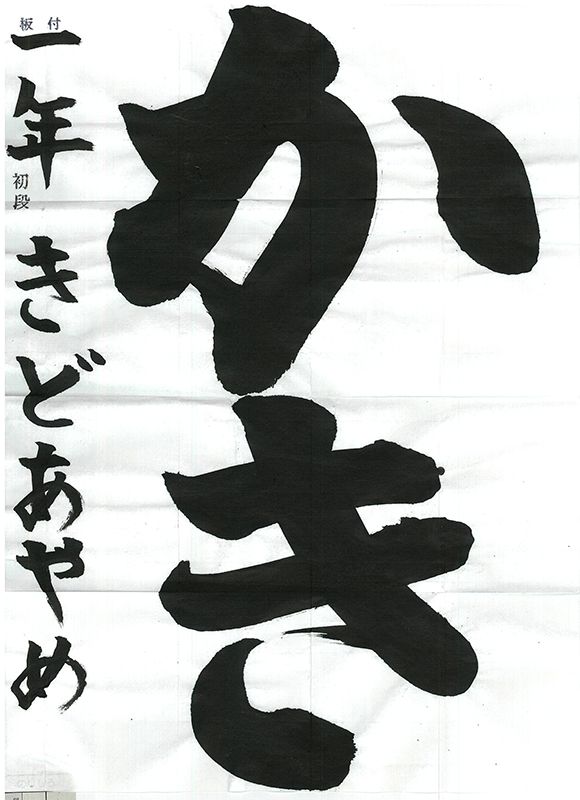 かき
板付
一年
初段
きどあやめ